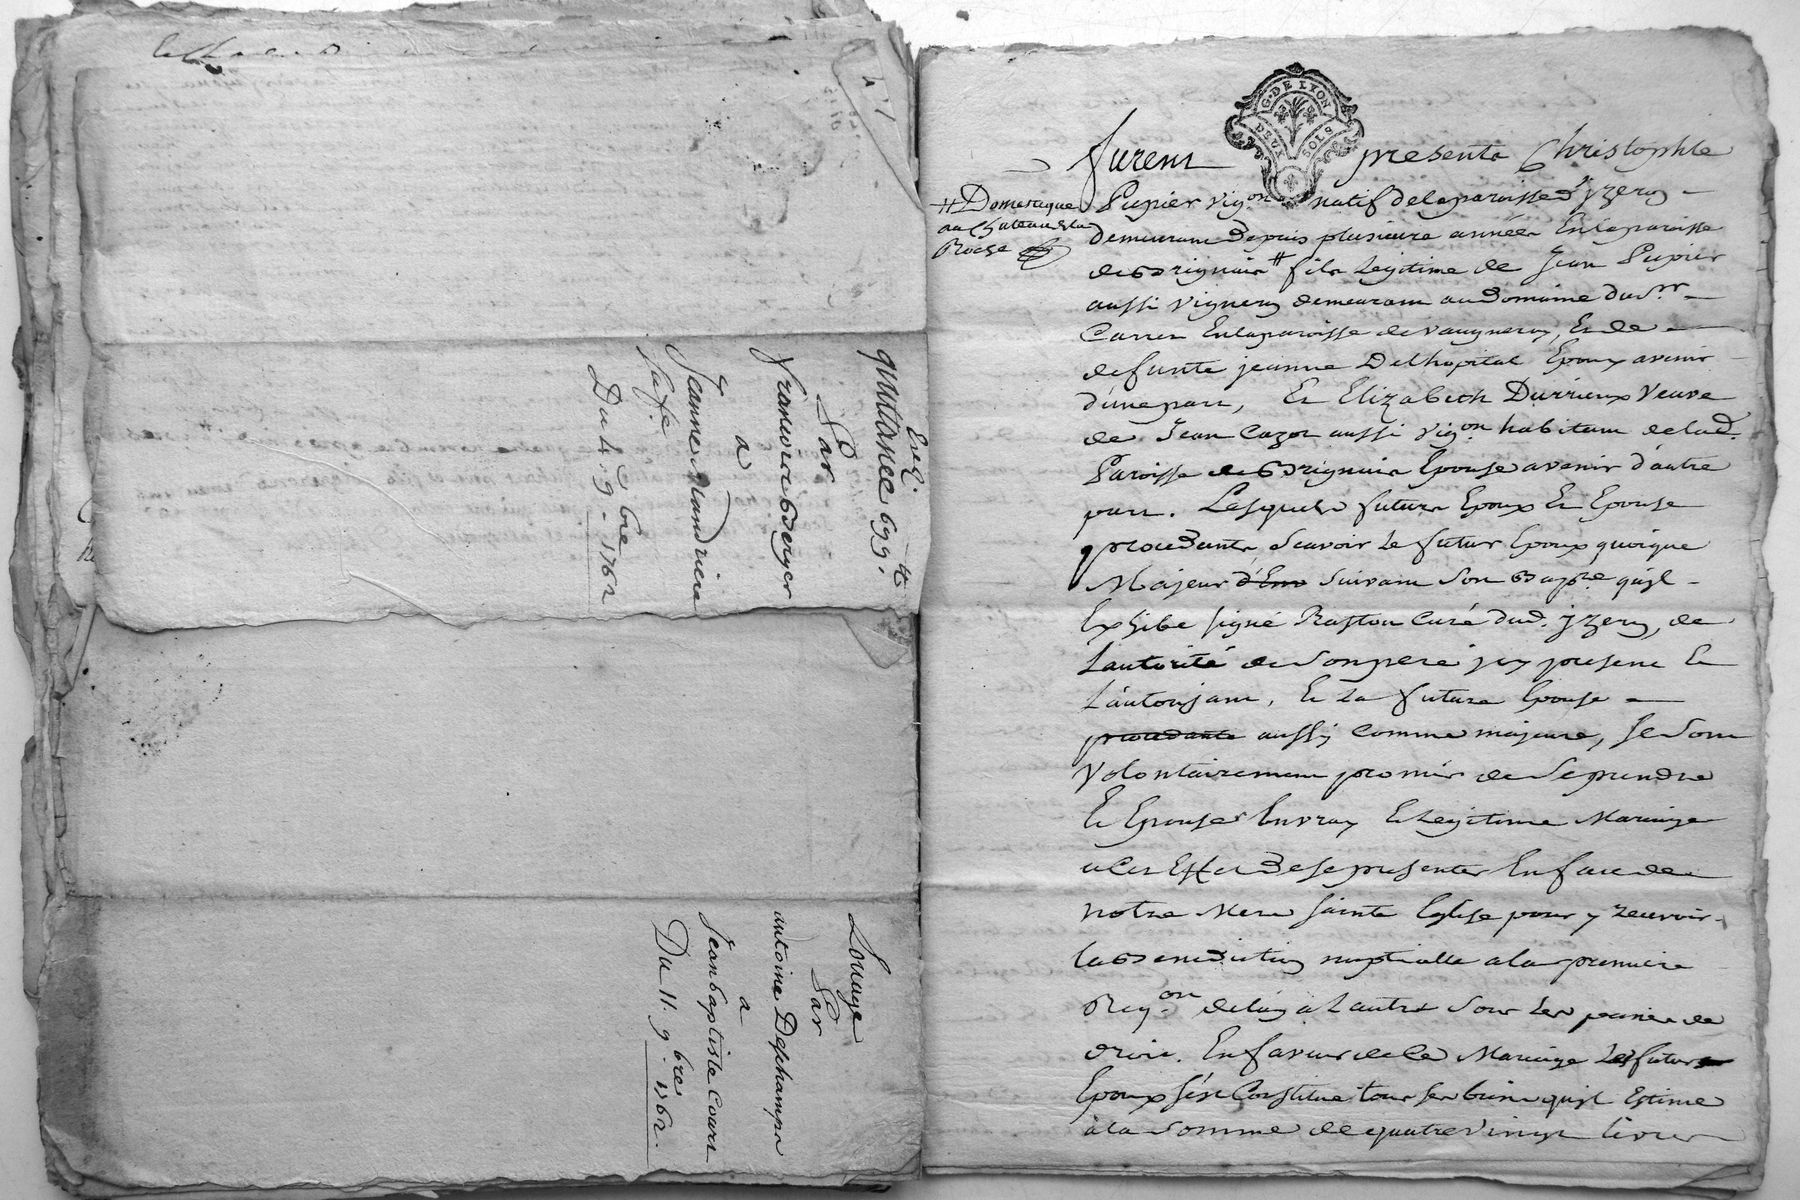 Exeq.
quittance 699.tt
Par
francoise Berger
a
Jeanne Mandriere
sa fe.
Du 4. 9.bre 1762
Louage
Par
antoine Deschamps
a
Jean baptiste Cours
Du 11. 9.bre 1762.
G. DE LYON
DEUX SOLS
furent presents Christophle
Pupier vigon natif de la paroisse d'yzeron
demeurant depuis plusieurs années En la paroisse
de Brignais # fils Legitime de Jean Pupier
# Domestique
au Chateau de la
Roche
aussi vigneron demeurant au domaine du Sr.
Carret En la paroisse de vaugneray, Et de
defunte jeanne Delhopital Epoux avenir
d'une part, Et Elizabeth Durrieux Veuve
de Jean Cazot aussi vigon habitant de lad.
Paroisse de Brignais Epouse avenir d'autre
part. Lesquels futurs Epoux Et Epouse
procedants scavoir Le futur Epoux quoique
Majeur d'Ens suivant son Baptre. qu'il
Exhibe signé Raston Curé dud. yzeron, de
L'autorité de son pere icy present Et
L'autorisant, Et La future Epouse
procedante aussy Comme majeure, se sont
Volontairement promis de se prendre
Et Epouser En vray Et Legitime Mariage
a Cet Effet de se presenter En face de
notre Mere sainte Eglise pour y recevoir
la Benediction nuptialle a la premiere
Reqon. de l'un a L'autre sous les peines de
droit. En faveur de Ce Mariage Le futur
Epoux s'est Constitué tous ses biens qu'il Estime
a la somme de quatre vingt livres